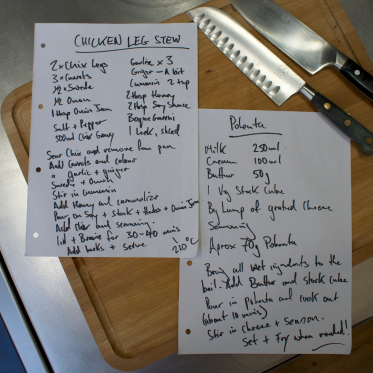 CHICKEN LEG STEW
2 x Chix Legs
3 x Carrots
1/2 x Swede
1/2 Onion
1 tbsp Onion Jam
Salt + Pepper
500ml Chix Gravy
Garlic x 3
Ginger - A bit
Cummin 2 tsp
2 tbsp Honey
2 tbsp Soy Sauce
Bouquet Garni
1 Leek, sliced
Sear Chix and remove from pan.
Add Carrots and colour
" garlic + ginger
Swede + Onion
Stir in Cummin
Add Honey and caramelize
Pour on Soy + Stock + Herbs + Onion Jam
Add Chix and seasoning.
Lid + Braise for 30-40 mins
210°C
Add leeks + serve
Polenta
Milk 250ml
Cream 100ml
Butter 50g
1 Veg Stock Cube
Big lump of grated Cheese
Seasoning
Aprox 70g Polenta
Bring all wet ingredients to the
boil. Add Butter and stock cube
Pour in Polenta and cook out
(about 10 mins)
Stir in cheese + season.
Set + Fry when needed!